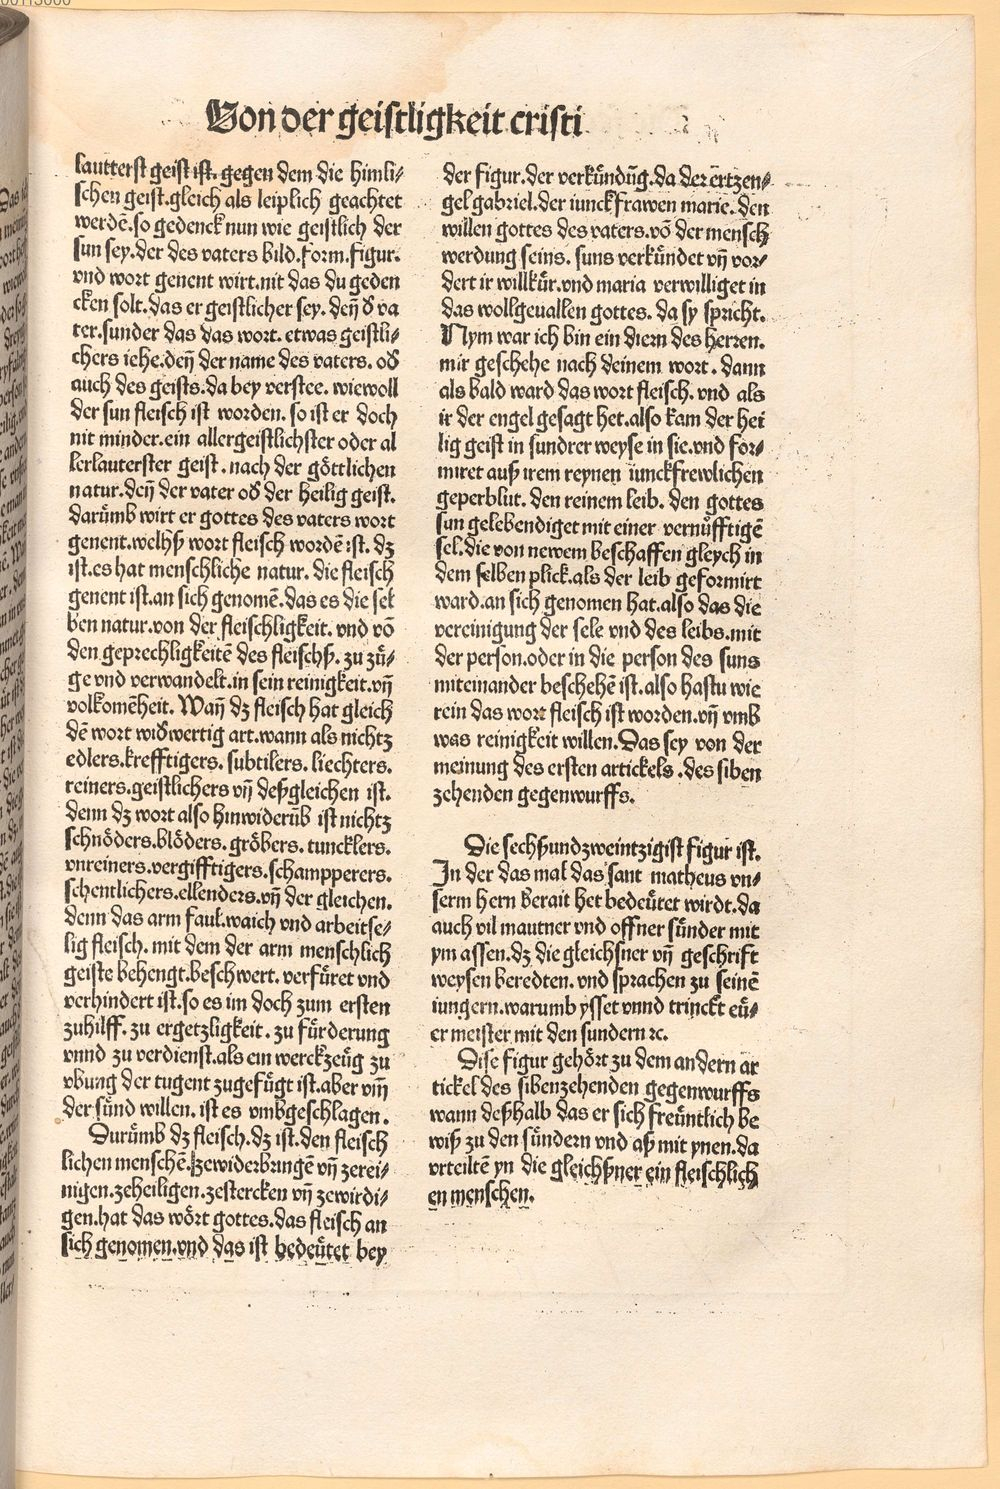 Von der geistligkeit cristi
lautterst geist ist. gegen dem die himli⸗
schen geist.gleich als leiplich geachtet
werdē.so gedenck nun wie geistlich der
sun sey.der des vaters bild.form.figur.
vnd wort genent wirt.nit das du geden
cken solt.das er geistlicher sey. deñ d̄ va
ter.sunder das das wort. etwas geistli⸗
chers iehe.deñ der name des vaters. od̄
auch des geists.da bey verstee. wiewoll
der sun fleisch ist worden. so ist er doch
nit minder.ein allergeistlichster oder al
lerlauterster geist. nach der göttlichen
natur.deñ der vater od̄ der heilig geist.
darümb wirt er gottes des vaters wort
genent.welhß wort fleisch wordē ist. dz
ist.es hat menschliche natur. die fleisch
genent ist.an sich genomē.das es die sel
ben natur.von der fleischligkeit. vnd vō
den geprechligkeitē des fleischß. zu zü⸗
ge vnd verwandelt.in sein reinigkeit.vñ
volkomēheit. Wañ dz fleisch hat gleich
dē wort wid̄wertig art.wann als nichtz
edlers.krefftigers. subtilers. liechters.
reiners.geistlichers vñ deßgleichen ist.
denn dz wort also hinwiderūb ist nichtz
schnöders.blöders. gröbers. tuncklers.
vnreiners.vergifftigers.schampperers.
schentlichers.ellenders.vñ der gleichen.
denn das arm faul.waich vnd arbeitse⸗
lig fleisch. mit dem der arm menschlich
geiste behengt.beschwert. verfüret vnd
verhindert ist.so es im doch zum ersten
zuhilff. zu ergetzligkeit. zu fürderung
vnnd zu verdienst.als ein werckzeüg zu
vbung der tugent zugefügt ist.aber vm̄
der sünd willen. ist es vmbgeschlagen.
Durümb dz fleisch.dz ist.den fleisch
lichen menschē.zewiderbringē vñ zerei⸗
nigen.zeheiligen.zestercken vñ zewirdi⸗
gen.hat das wört gottes.das fleisch an
sich genomen.vnd das ist bedeütet bey
der figur.der verkündūg.da der ertzen⸗
gel gabriel.der iunckfrawen marie. den
willen gottes des vaters.vō der mensch
werdung seins. suns verkündet vñ vor⸗
dert ir willkür.vnd maria verwilliget in
das wollgeuallen gottes. da sy spricht.
Nym war ich bin ein diern des herren.
mir geschehe nach deinem wort. dann
als bald ward das wort fleisch. vnd als
ir der engel gesagt het.also kam der hei
lig geist in sundrer weyse in sie.vnd for⸗
miret auß irem reynen iunckfrewlichen
geperblut. den reinem leib. den gottes
sun gelebendiget mit einer vernüfftigē
sel.die von newem beschaffen gleych in
dem selben plick.als der leib geformirt
ward.an sich genomen hat.also das die
vereinigung der sele vnd des leibs.mit
der person.oder in die person des suns
miteinander beschehē ist.also hastu wie
rein das wort fleisch ist worden.vñ vmb
was reinigkeit willen.Das sey von der
meinung des ersten artickels.des siben
zehenden gegenwurffs.
Die sechßundzweintzigist figur ist.
In der das mal das sant matheus vn⸗
serm hern berait het bedeütet wirdt.da
auch vil mautner vnd offner sünder mit
ym assen.dz die gleichsner vñ geschrift
weysen beredten. vnd sprachen zu seinē
iungern.warumb ysset vnnd trinckt eü⸗
er meister mit den sundern ⁊c.
Dise figur gehört zu dem andern ar
tickel des sibenzehenden gegenwurffs
wann deßhalb das er sich freüntlich be
wiß zu den sündern vnd aß mit ynen.da
vrteiltē yn die gleichßner ein fleischlich
en menschen.